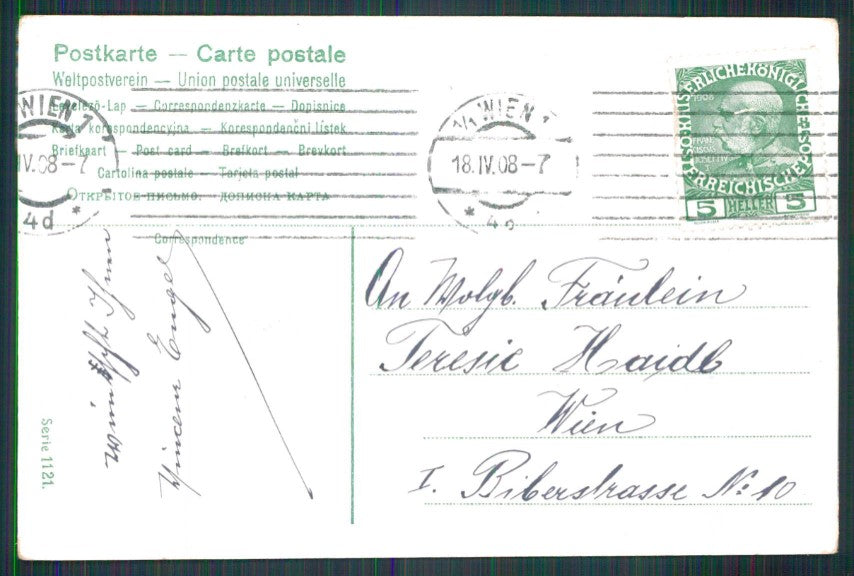 Postkarte — Carte postale
Weltpostverein — Union postale universelle
Levelező-Lap — Correspondenzkarte — Dopisnice
Karta korespondencyjna — Korespondenční lístek
Briefkaart — Post card — Brefkort — Brevkort
Cartolina postale — Tarjeta postal
Открытое письмо. дописна карта
Correspondence
WIEN 7
IV.08-7
* 4d *
1/1 WIEN 7
18.IV.08-7
KAISERLICHEKÖNIGLICHE
ÖSTERREICHISCHE POST
1908
5 HELLER 5
wünscht Ihnen
Engel
Serie 1121.
An Wolgb. Fräulein
Teresie Haidl
Wien
I. Biberstrasse No. 10